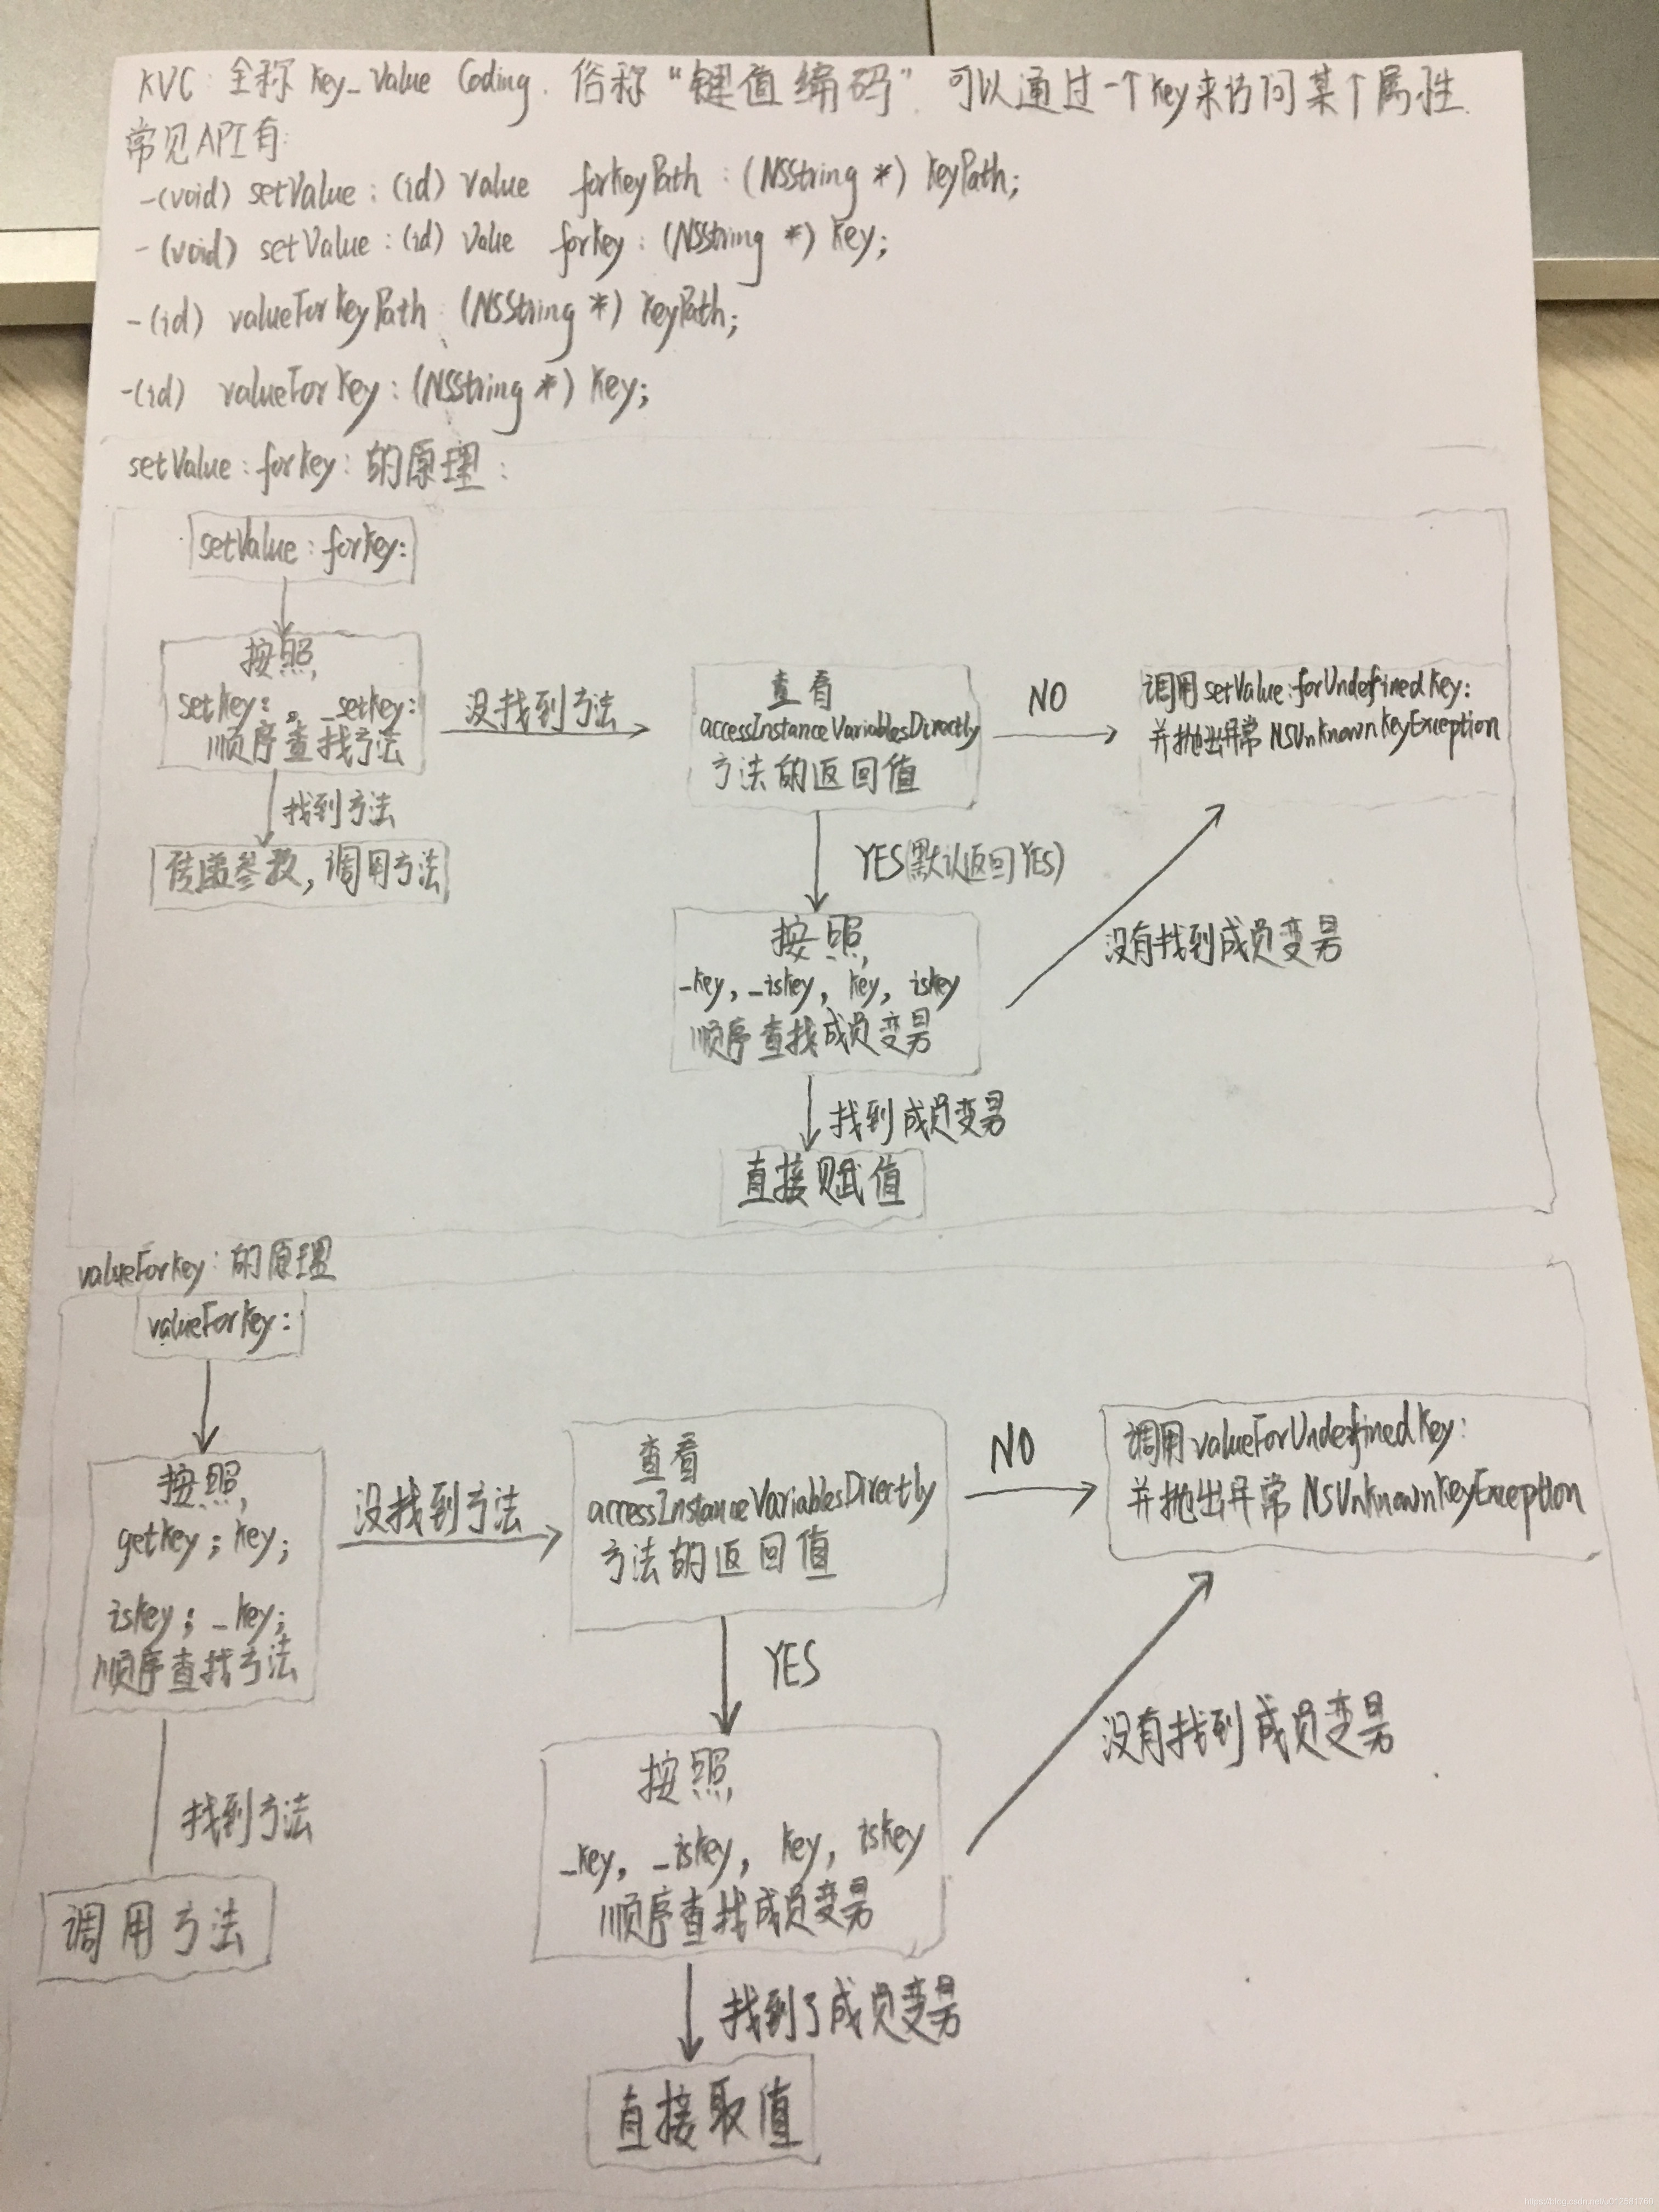 KVC:全称 Key_Value Coding.俗称“键值编码”.可以通过一个Key来访问某个属性.
常见API有:
-(void) setValue:(id) Value forKeyPath:(NSString *) KeyPath;
-(void) setValue:(id) Value forKey:(NSString *) Key;
-(id) valueForKeyPath:(NSString *) KeyPath;
-(id) valueForKey:(NSString *) Key;
setValue:forKey:的原理:
setValue:forKey:
按照,
setKey:, _setKey:
顺序查找方法
没找到方法
查看
accessInstanceVariablesDirectly
方法的返回值
NO
调用setValue:forUndefinedKey:
并抛出异常NSUnknownKeyException
找到方法
传递参数,调用方法
YES(默认返回YES)
按照,
_Key, _isKey, Key, isKey
顺序查找成员变量
没有找到成员变量
找到成员变量
直接赋值
valueForKey:的原理
valueForKey:
按照,
getKey; Key;
isKey; _Key;
顺序查找方法
没找到方法
查看
accessInstanceVariablesDirectly
方法的返回值
NO
调用valueForUndefinedKey:
并抛出异常NSUnknownKeyException
找到方法
调用方法
YES
按照,
_Key, _isKey, Key, isKey
顺序查找成员变量
没有找到成员变量
找到了成员变量
直接取值